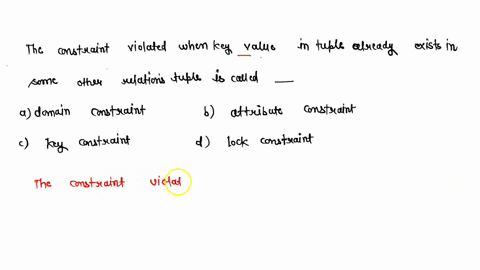 The constraint violated when key value in tuple already exists in
some other relation's tuple is called __
a) domain constraint b) attribute constraint
c) key constraint d) lock constraint
The constraint violat